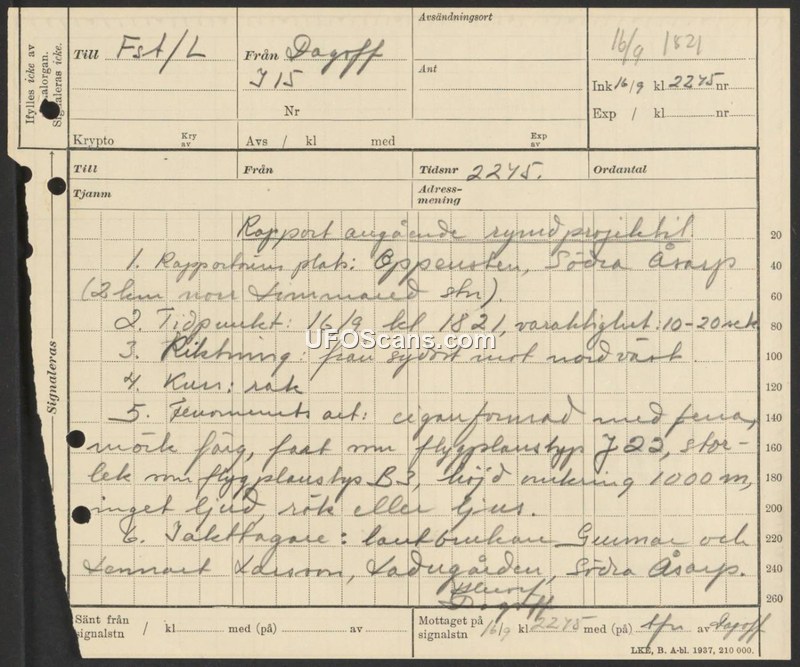 Ifylles icke av
signalorgan.
Signaleras icke.
Till Fst/L
Från Dagoff
J 15
Nr
Avsändningsort
Ant
16/9 1821
Ink 16/9 kl 2275 nr
Exp / kl nr
Krypto
Kry
av
Avs / kl med
Exp
av
Till
Från
Tidsnr 2275.
Ordantal
Tjanm
Adress-
mening
Signaleras
Rapport angående rymdprojektil.
20
1. Rapportörens plats: Södra Åsarp
40
(2 km norr Limmared stn).
60
2. Tidpunkt: 16/9 kl 1821, varaktighet: 10-20 sek
80
3. Riktning: från sydost mot nordväst.
100
4. Kurs: rak
120
5. Fenomenets art: cigarrformad med fena,
140
mörk färg, fart som flygplanstyp J 22, stor-
160
lek som flygplanstyp B 3, höjd omkring 1000 m,
180
inget ljud, rök eller ljus.
200
6. Iakttagare: lantbrukare Gunnar och
220
Lennart Larsson, Ladugården, Södra Åsarp.
240
Dagoff
260
Sänt från
signalstn / kl med (på) av
Mottaget på
signalstn 16/9 kl 2275 med (på) tfn av Dagoff
LKE, B. A-bl. 1937, 210 000.
UFOScans.com